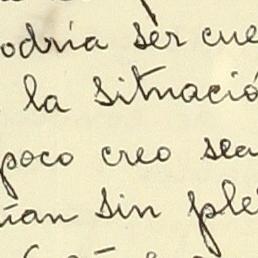 odría ser cue
la situació
poco creo sea
ían sin ple